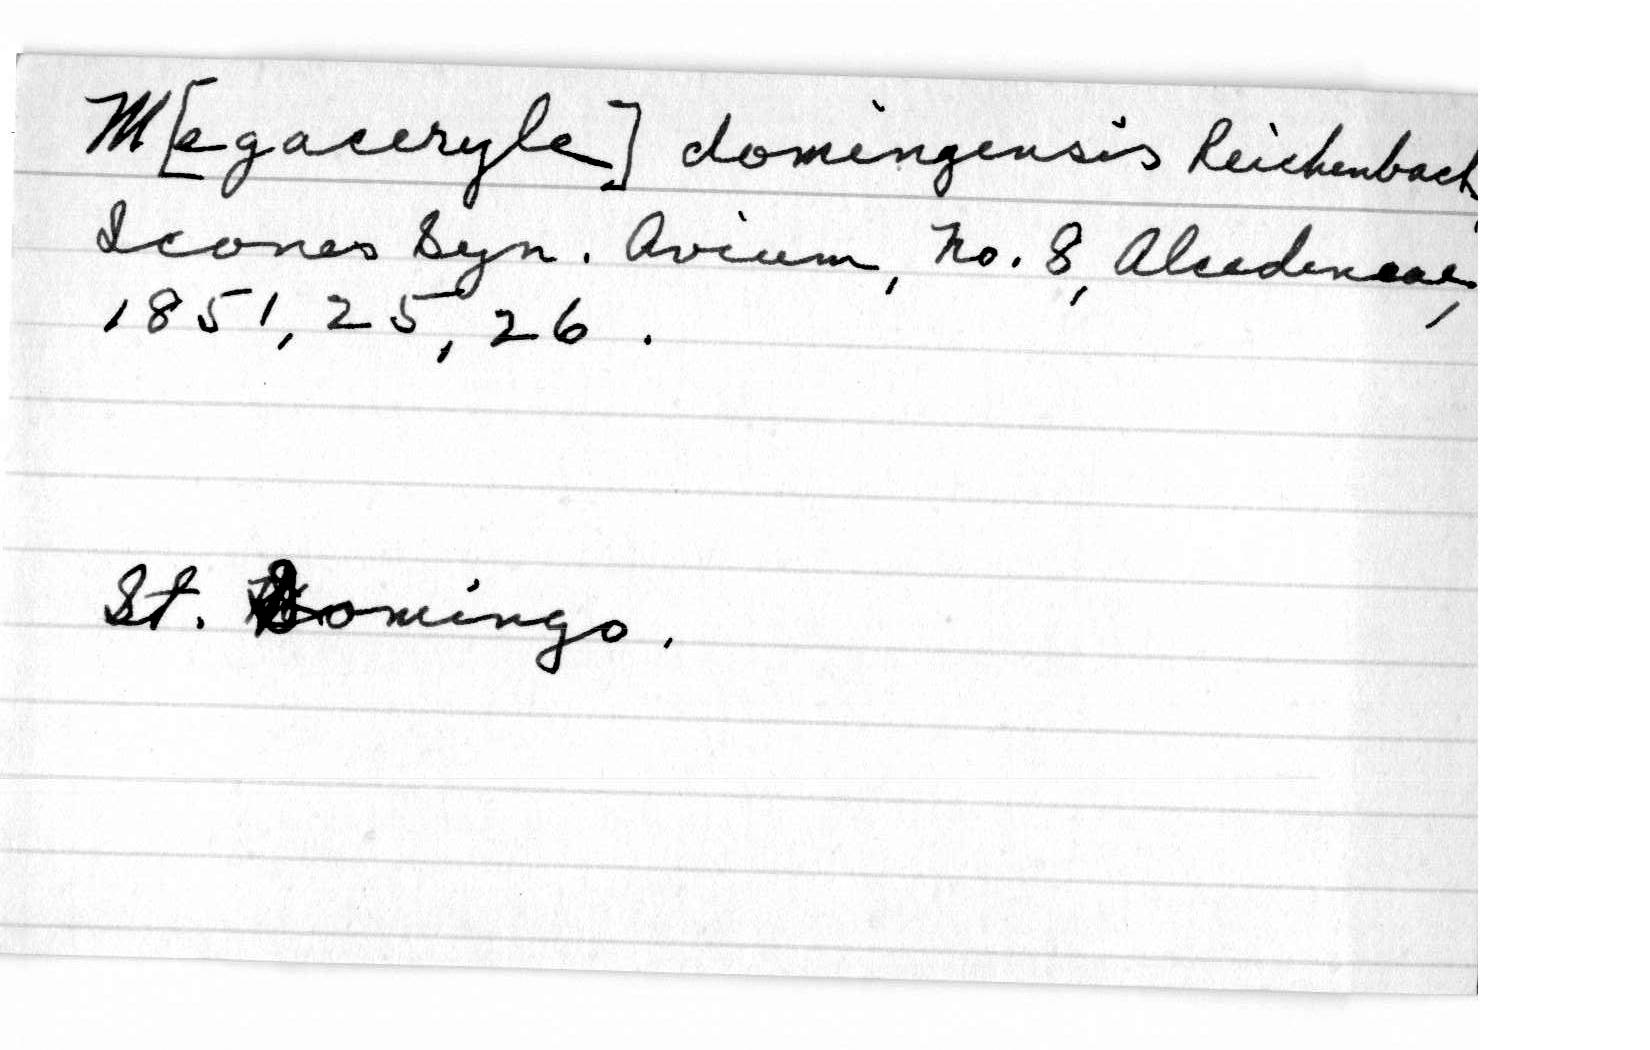 M[egaceryle] domingensis Reichenbach,
Icones Syn. Avium, No. 8, Alcedineae,
1851, 25, 26.
St. Domingo.